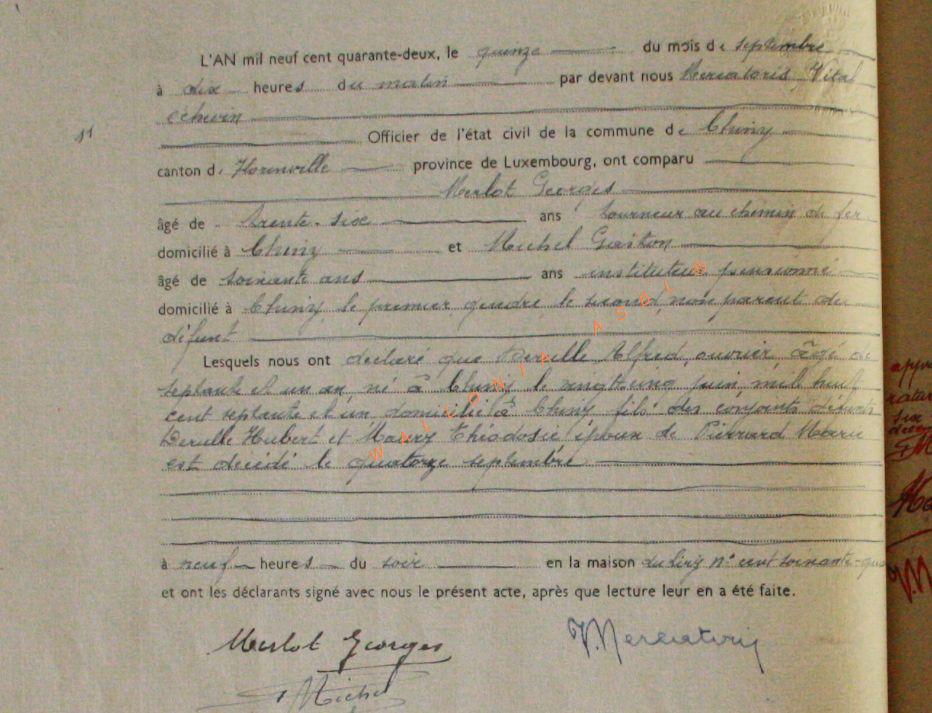 L'AN mil neuf cent quarante-deux, le quinze du mois de septembre
à dix heures du matin par devant nous Mercatoris, Vital
échevin
11 Officier de l'état civil de la commune de Chiny
canton de province de Luxembourg, ont comparu
Merlot Georges
âgé de trente-six ans tourneur au chemin de fer
domicilié à Chiny et Michel Gaston
âgé de soixante ans ans instituteur pensionné
domicilié à Chiny le premier gendre le second non parent du
défunt
Lesquels nous ont déclaré que Alfred, ouvrier, âgé de
septante et un an, né à Chiny le vingt cinq juin mil huit
cent septante et un domicilié à Chiny fils des conjoints défunts
Hubert et Théodosie époux de Pierrard
est décédé le quatorze septembre
à neuf heures du soir en la maison n° cent soixante-qua
et ont les déclarants signé avec nous le présent acte, après que lecture leur en a été faite.
Merlot Georges V. Mercatoris
Michel